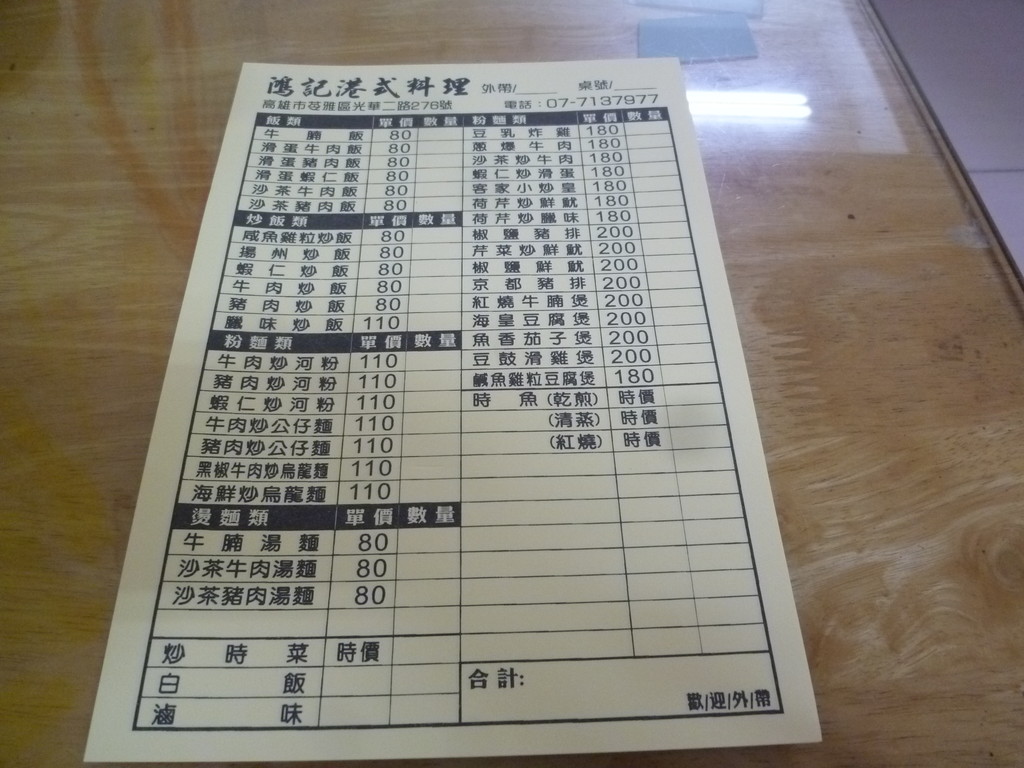 鴻記港式料理 外帶/_____ 桌號/_____
高雄市苓雅區光華二路276號 電話：07-7137977
飯類 單價 數量
牛腩飯 80
滑蛋牛肉飯 80
滑蛋豬肉飯 80
滑蛋蝦仁飯 80
沙茶牛肉飯 80
沙茶豬肉飯 80
炒飯類 單價 數量
咸魚雞粒炒飯 80
揚州炒飯 80
蝦仁炒飯 80
牛肉炒飯 80
豬肉炒飯 80
臘味炒飯 110
粉麵類 單價 數量
牛肉炒河粉 110
豬肉炒河粉 110
蝦仁炒河粉 110
牛肉炒公仔麵 110
豬肉炒公仔麵 110
黑椒牛肉炒烏龍麵 110
海鮮炒烏龍麵 110
燙麵類 單價 數量
牛腩湯麵 80
沙茶牛肉湯麵 80
沙茶豬肉湯麵 80
炒時菜 時價
白飯
滷味
粉麵類 單價 數量
豆乳炸雞 180
蔥爆牛肉 180
沙茶炒牛肉 180
蝦仁炒滑蛋 180
客家小炒皇 180
荷芹炒鮮魷 180
荷芹炒臘味 180
椒鹽豬排 200
芹菜炒鮮魷 200
椒鹽鮮魷 200
京都豬排 200
紅燒牛腩煲 200
海皇豆腐煲 200
魚香茄子煲 200
豆鼓滑雞煲 200
鹹魚雞粒豆腐煲 180
時魚(乾煎) 時價
(清蒸) 時價
(紅燒) 時價
合計:
歡/迎/外/帶